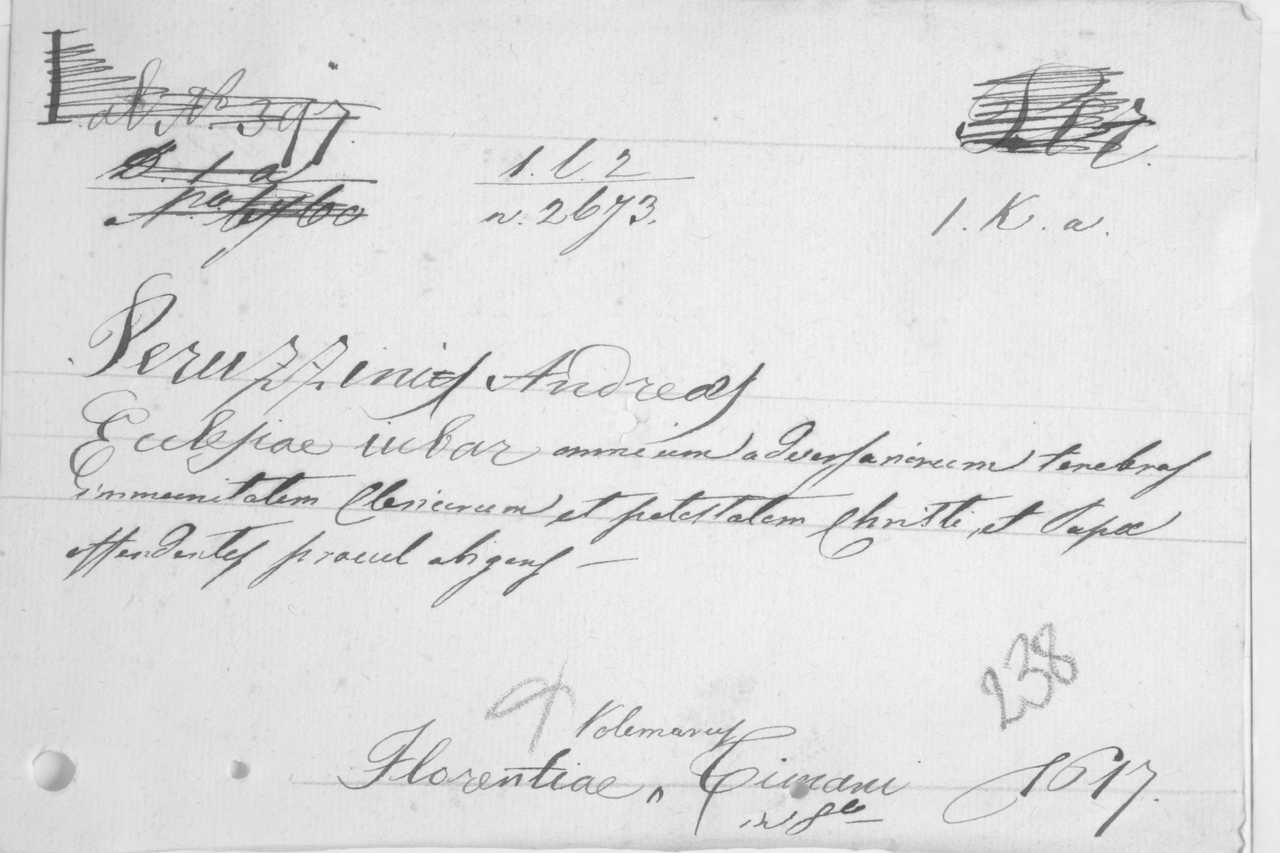 N. 397.
1. l. 2
n. 2673.
1. K. a.
Peruzzinis Andreas
Ecclesiae iubar omnium adversariorum tenebras
immunitatem Clericorum et potestatem Christi, et Papæ
offendentes procul abigens —
238
Volemarus
Florentiae, Timani 1617.
in 8º